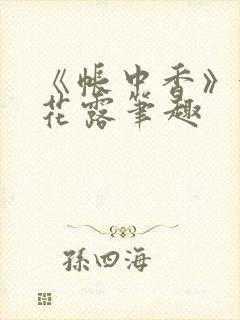 《帳中香》
花露筆趣
孫四海